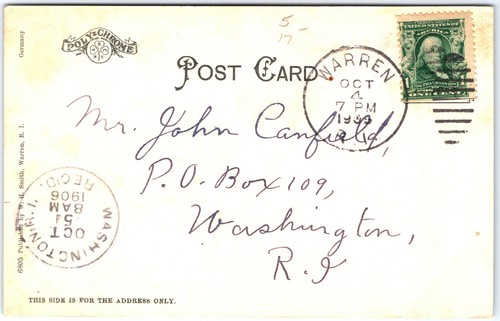 5
17
POLY-CHROME
POST CARD
WARREN
OCT
4
7 PM
UNITED STATES OF
AMERICA
1
FRANKLIN
ONE CENT
Mr. John Canfield,
P.O. Box 109,
Washington,
R.I
WASHINGTON, R.I.
OCT
5
8 AM
1906
REC'D.
Germany
6805 Published by W. H. Smith, Warren, R. I.
THIS SIDE IS FOR THE ADDRESS ONLY.